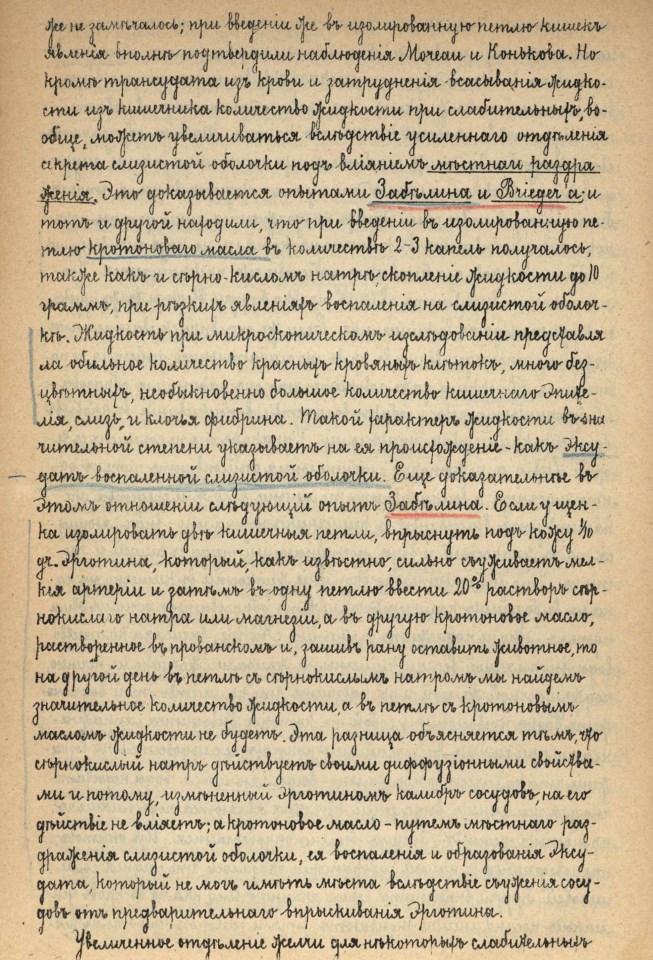 же не замѣчалось; при введеніи же въ изолированную петлю кишекъ
явленія вполнѣ подтвердили наблюденія Мочеаи и Конькова. Но
кромѣ трансудата изъ крови и затрудненія всасыванія жидко-
сти изъ кишечника количество жидкости при слабительныхъ, во-
обще, можетъ увеличиваться вслѣдствіе усиленнаго отдѣленія
секрета слизистой оболочки подъ вліяніемъ мѣстнаго раздра
женія. Это доказывается опытами Забѣлина и Brieger'а; и
тотъ и другой находили, что при введеніи въ изолированную пе-
тлю кротоноваго масла въ количествѣ 2-3 капель получалось,
также какъ и сѣрно-кисломъ натрѣ, скопленіе жидкости до 10
граммъ, при рѣзкихъ явленіяхъ воспаленія на слизистой оболоч-
кѣ. Жидкость при микроскопическомъ изслѣдованіи представля
ла обильное количество красныхъ кровяныхъ клѣтокъ, много без-
цвѣтныхъ, необыкновенно большое количество кишечнаго эпите-
лія, слизь, и клочья фибрина. Такой характеръ жидкости въ зна
чительной степени указываетъ на ея происхожденіе - какъ эксу-
датъ воспаленной слизистой оболочки. Еще доказательнѣе въ
этомъ отношеніи слѣдующій опытъ Забѣлина. Если у щен-
ка изолировать двѣ кишечныя петли, впрыснуть подъ кожу 1/10
gr. Эрготина, который, какъ извѣстно, сильно съуживаетъ мел-
кія артеріи и затѣмъ въ одну петлю ввести 20% растворъ сѣр-
нокислаго натра или магнезіи, а въ другую кротоновое масло,
растворенное въ прованскомъ и, зашивъ рану оставить животное, то
на другой день въ петлѣ съ сѣрнокислымъ натромъ мы найдемъ
значительное количество жидкости, а въ петлѣ съ кротоновымъ
масломъ жидкости не будетъ. Эта разница объясняется тѣмъ, что
сѣрнокислый натръ дѣйствуетъ своими диффузіонными свойства-
ми и потому, измѣненный Эрготиномъ калибръ сосудовъ, на его
дѣйствіе не вліяетъ; а кротоновое масло - путемъ мѣстнаго раз-
драженія слизистой оболочки, ея воспаленія и образованія Эксу-
дата, который не могъ имѣть мѣста вслѣдствіе съуженія сосу-
довъ отъ предварительнаго впрыскиванія Эрготина.
Увеличенное отдѣленіе желчи для нѣкоторыхъ слабительныхъ